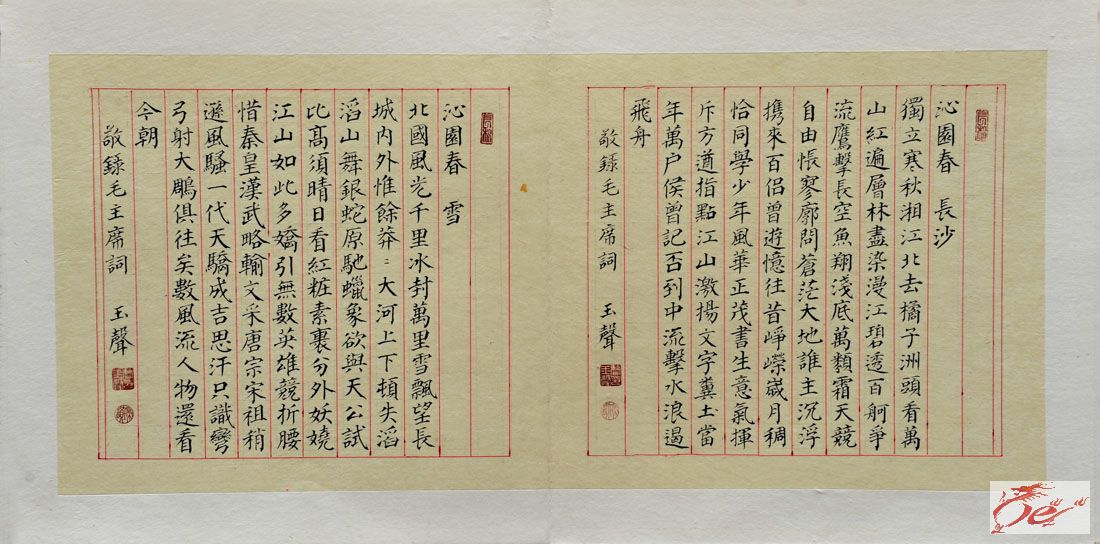 沁園春 長沙
獨立寒秋湘江北去橘子洲頭看萬
山紅遍層林盡染漫江碧透百舸爭
流鷹擊長空魚翔淺底萬類霜天競
自由悵寥廓問蒼茫大地誰主沉浮
携來百侶曾遊憶往昔崢嶸崴月稠
恰同學少年風華正茂書生意氣揮
斥方遒指點江山激揚文字糞土當
年萬户侯曾記否到中流擊水浪遏
飛舟
敬録毛主席詞 玉聲
沁園春 雪
北國風光千里冰封萬里雪飄望長
城内外惟餘莽〻大河上下頓失滔
滔山舞銀蛇原馳蠟象欲與天公試
比髙須晴日看紅粧素裹分外妖嬈
江山如此多嬌引無數英雄競折腰
惜秦皇漢武略輸文采唐宗宋祖稍
遜風騷一代天驕成吉思汗只識彎
弓射大鵰俱往矣數風流人物還看
今朝
敬録毛主席詞 玉聲